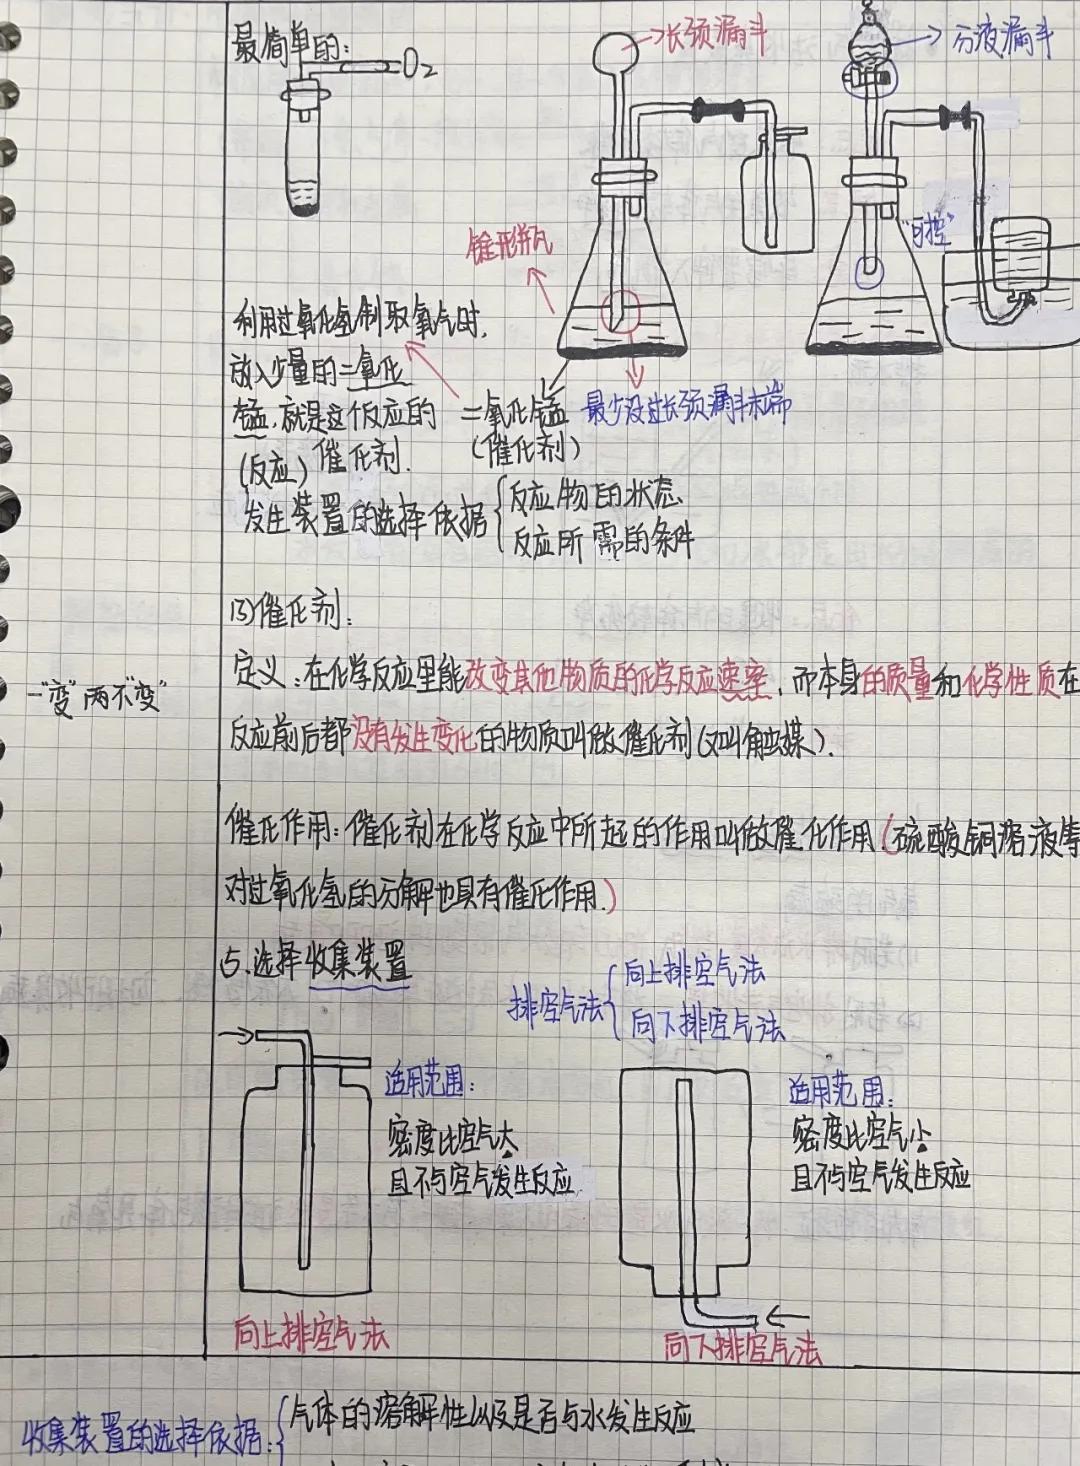 最简单的:
O₂
长颈漏斗
分液漏斗
锥形瓶
"可控"
利用过氧化氢制取氧气时,
放入少量的二氧化
锰,就是这个反应的
(反应)催化剂.
二氧化锰
(催化剂)
最少没过长颈漏斗末端
发生装置的选择依据{反应物的状态
反应所需的条件
(3)催化剂:
定义:在化学反应里能改变其他物质的化学反应速率,而本身的质量和化学性质在
一"变"两不"变"
反应前后都没有发生变化的物质叫做催化剂(又叫触媒).
催化作用:催化剂在化学反应中所起的作用叫做催化作用.(硫酸铜溶液等
对过氧化氢的分解也具有催化作用.)
5.选择收集装置
排空气法{向上排空气法
向下排空气法
适用范围:
密度比空气大
且不与空气发生反应
向上排空气法
适用范围:
密度比空气小
且不与空气发生反应
向下排空气法
收集装置的选择依据:{气体的溶解性以及是否与水发生反应